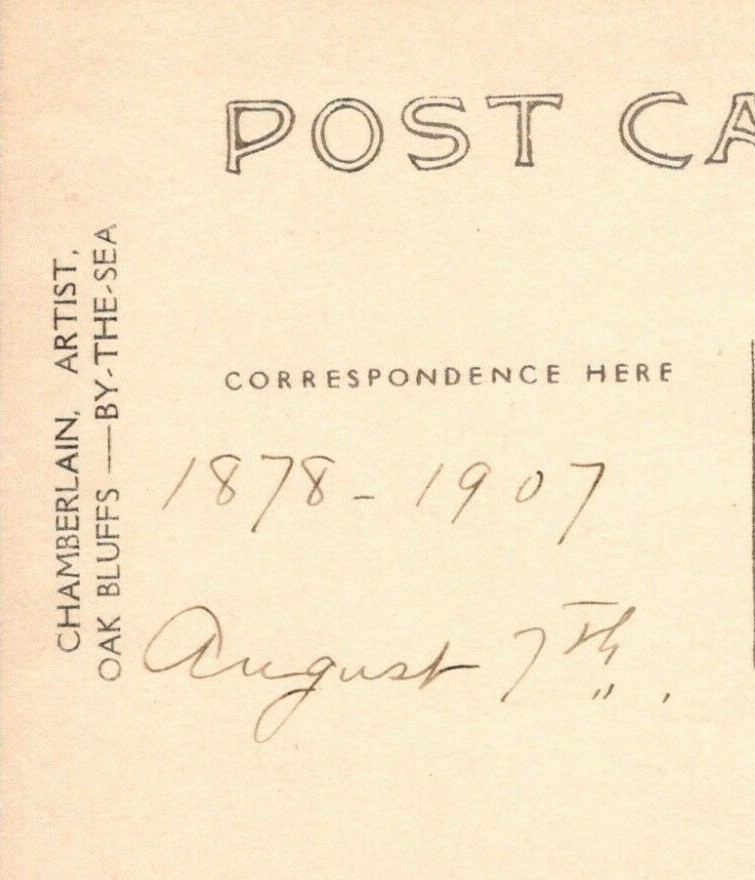 POST CA
CHAMBERLAIN, ARTIST,
OAK BLUFFS —BY-THE-SEA
CORRESPONDENCE HERE
1878 - 1907
August 7th.